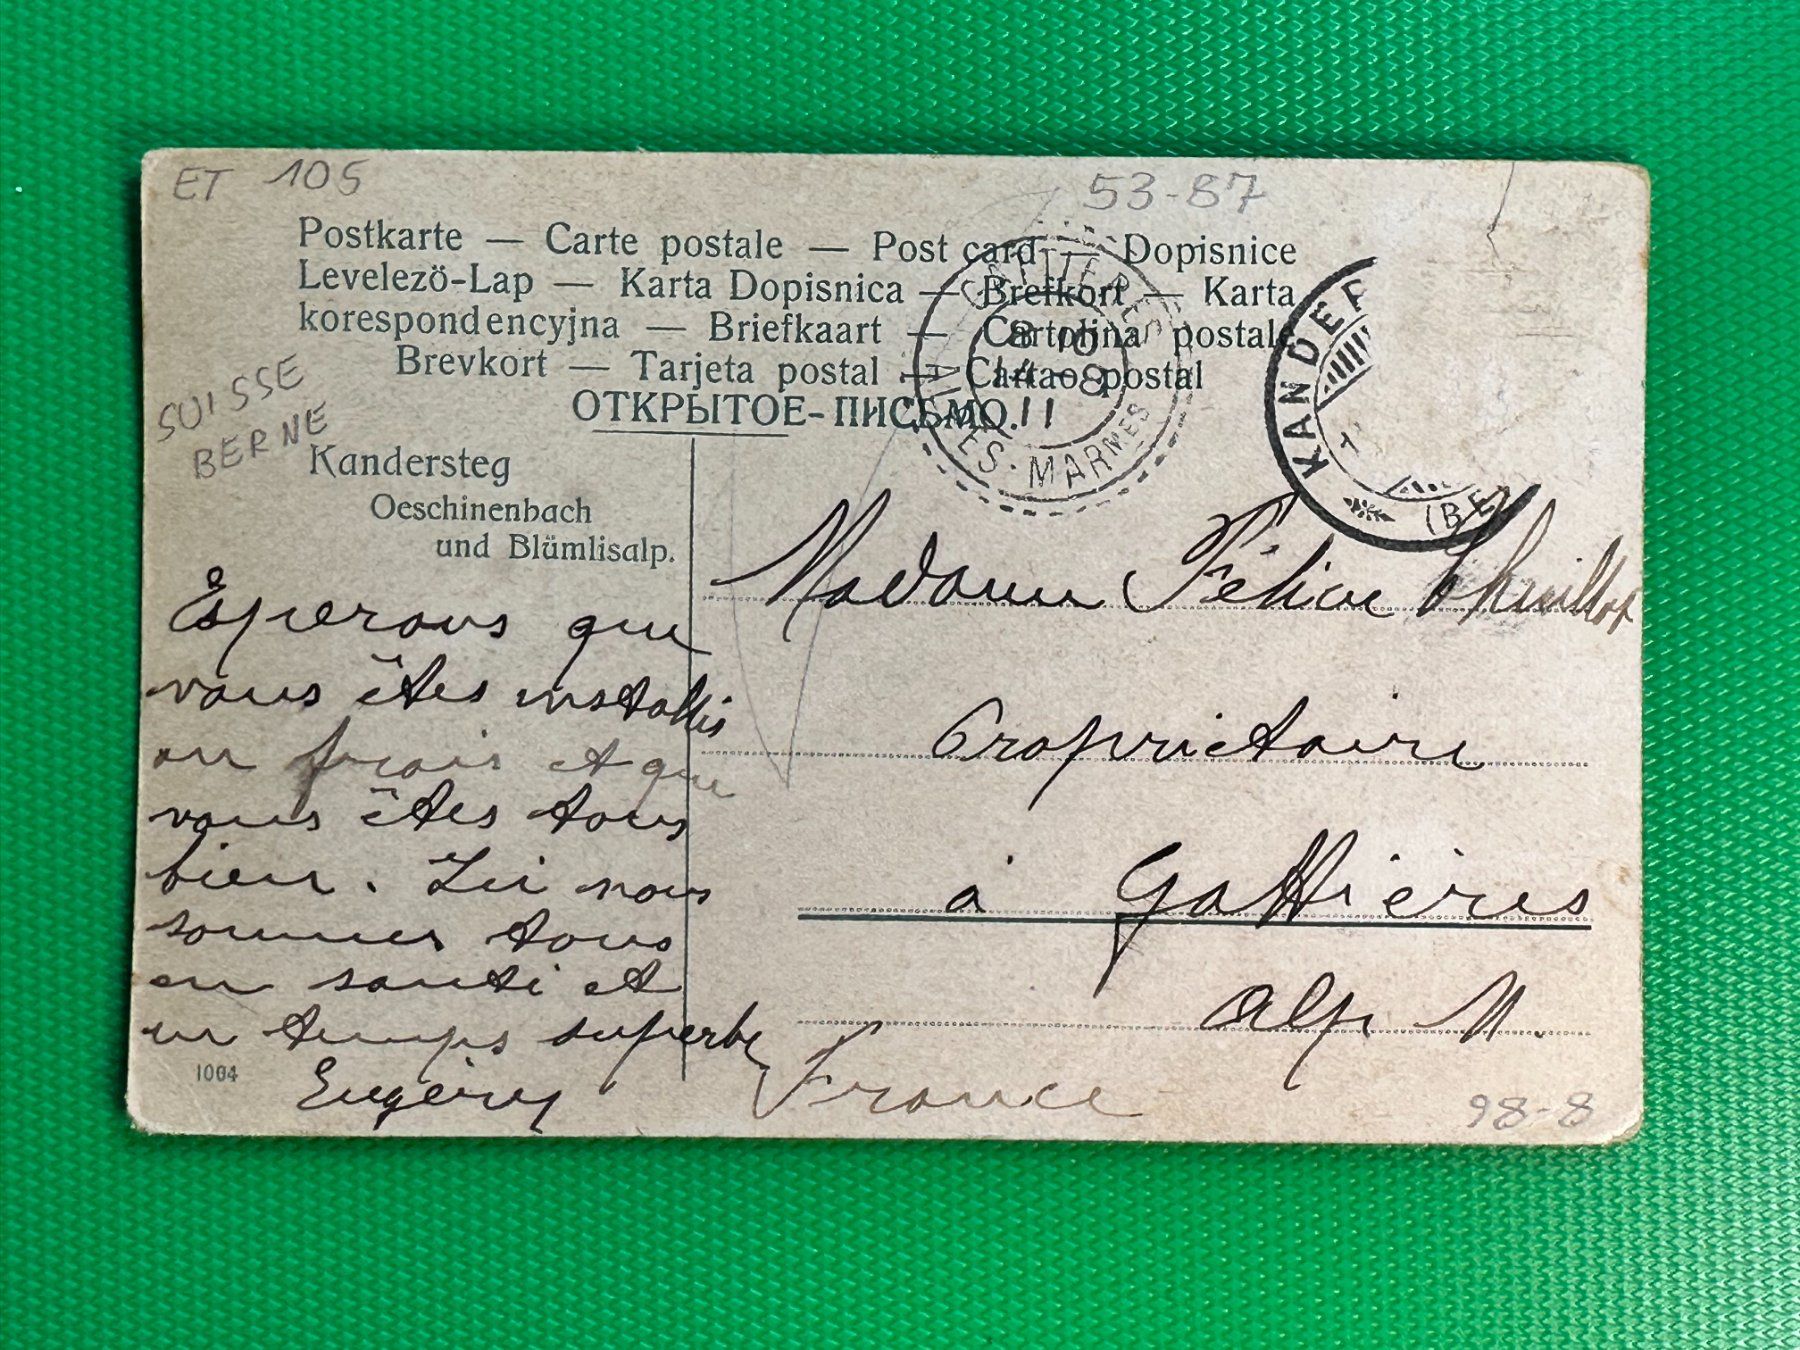 ET 105
53-87
Postkarte — Carte postale — Post card — Dopisnice
Levelezö-Lap — Karta Dopisnica — Brefkort — Karta
korespondencyjna — Briefkaart — Cartolina postale
Brevkort — Tarjeta postal — Cartao postal
ОТКРЫТОЕ-ПИСЬМО.
GATTIERES
8 10
14 - 8
11
ALPES-MARMES
KANDER
(BE
SUISSE
BERNE
Kandersteg
Oeschinenbach
und Blümlisalp.
Esperons que
vous êtes installés
au frais et que
vous êtes tous
bien. Ici nous
sommes tous
en santé et
un temps superbe
1004
Madame Félicie
Propriétaire
à Gattières
Alp M.
France
98-8